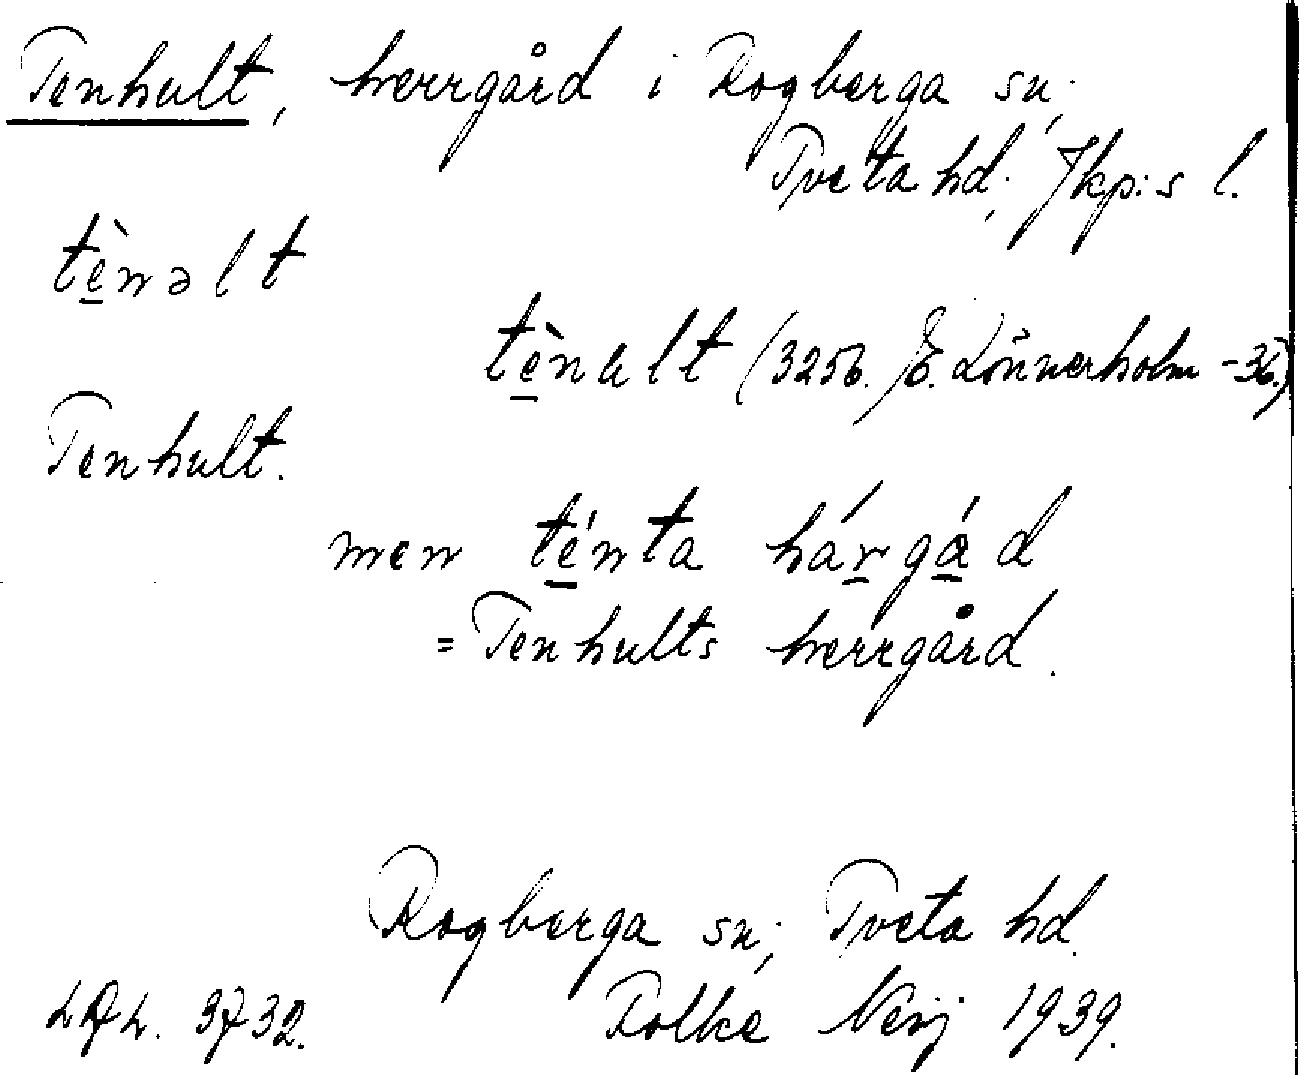 Tenhult, herrgård i Rogberga sn;
Tveta hd; Jkp:s l.
tè̱nəlt
tè̱nult (3256. E. Lönnerholm -36.)
Tenhult.
men té̱nta háṟgá̱d
= Tenhults herrgård.
Rogberga sn; Tveta hd.
3732. 1939.